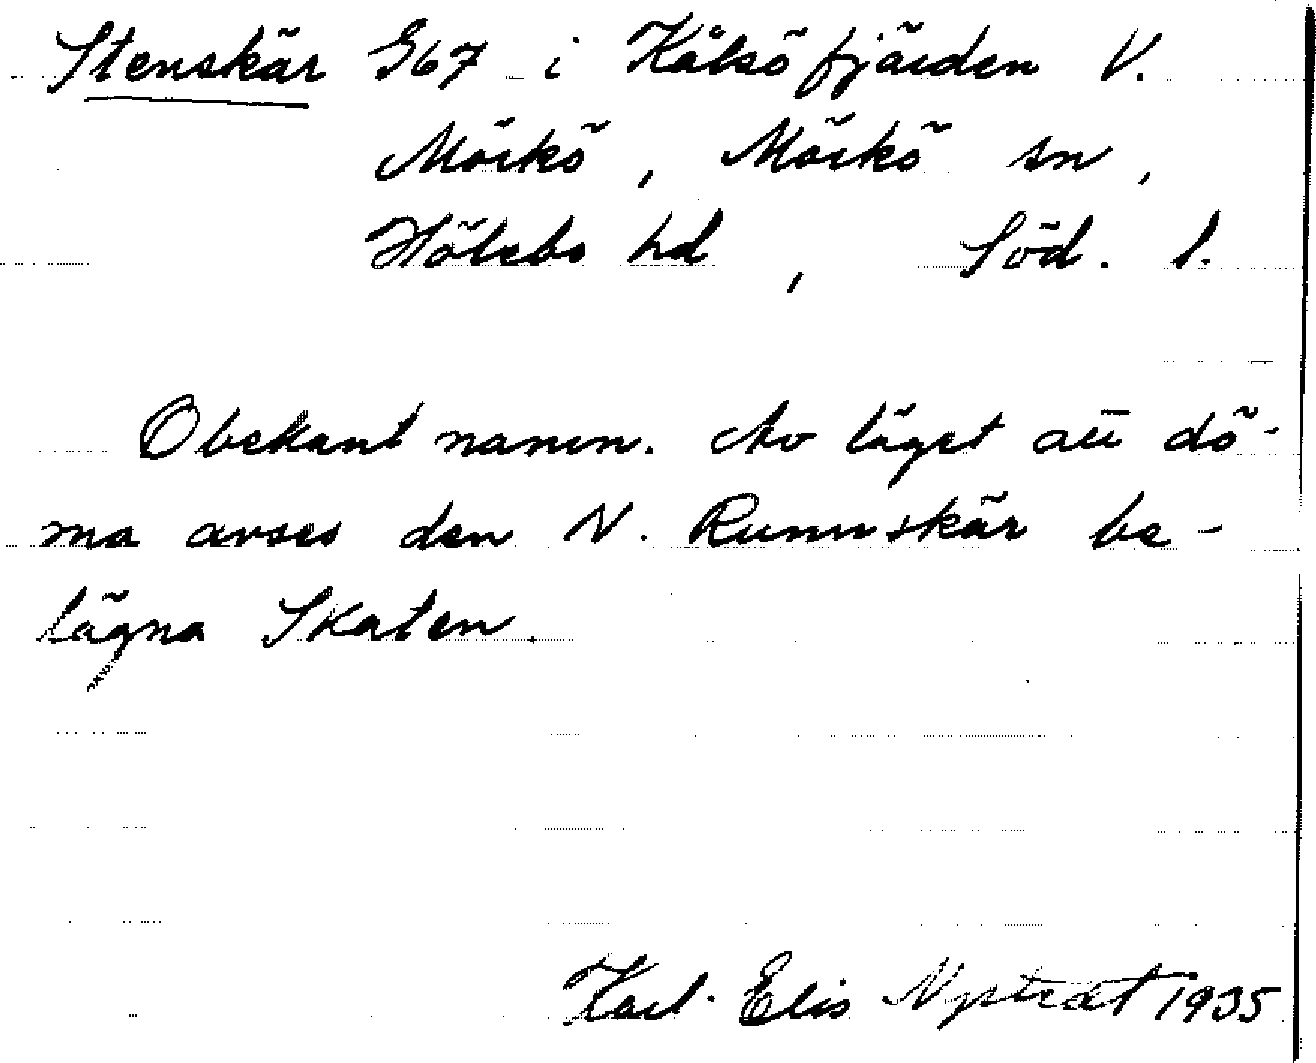 Stenskär G67 i Kålsöfjärden V.
Mörkö, Mörkö sn,
Hölebo hd, Söd. l.
Obekant namn. Av läget att dö-
ma avses den N. Runnskär be-
lägna Skaten.
Karl-Elis 1935